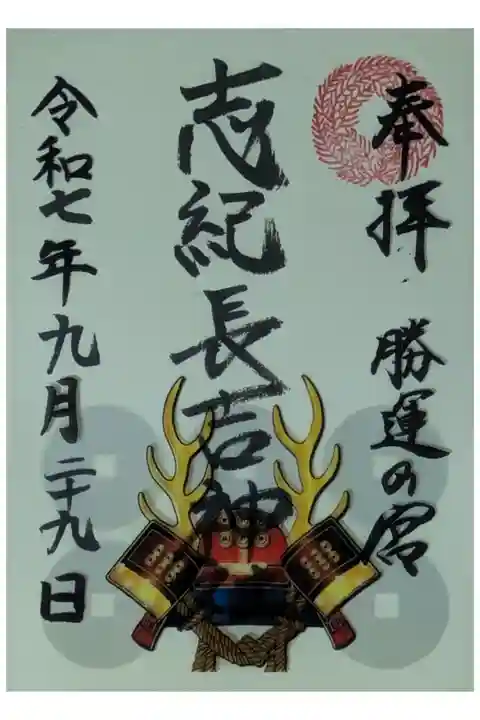 奉拝 勝運の宮
志紀長吉神
令和七年九月二十九日